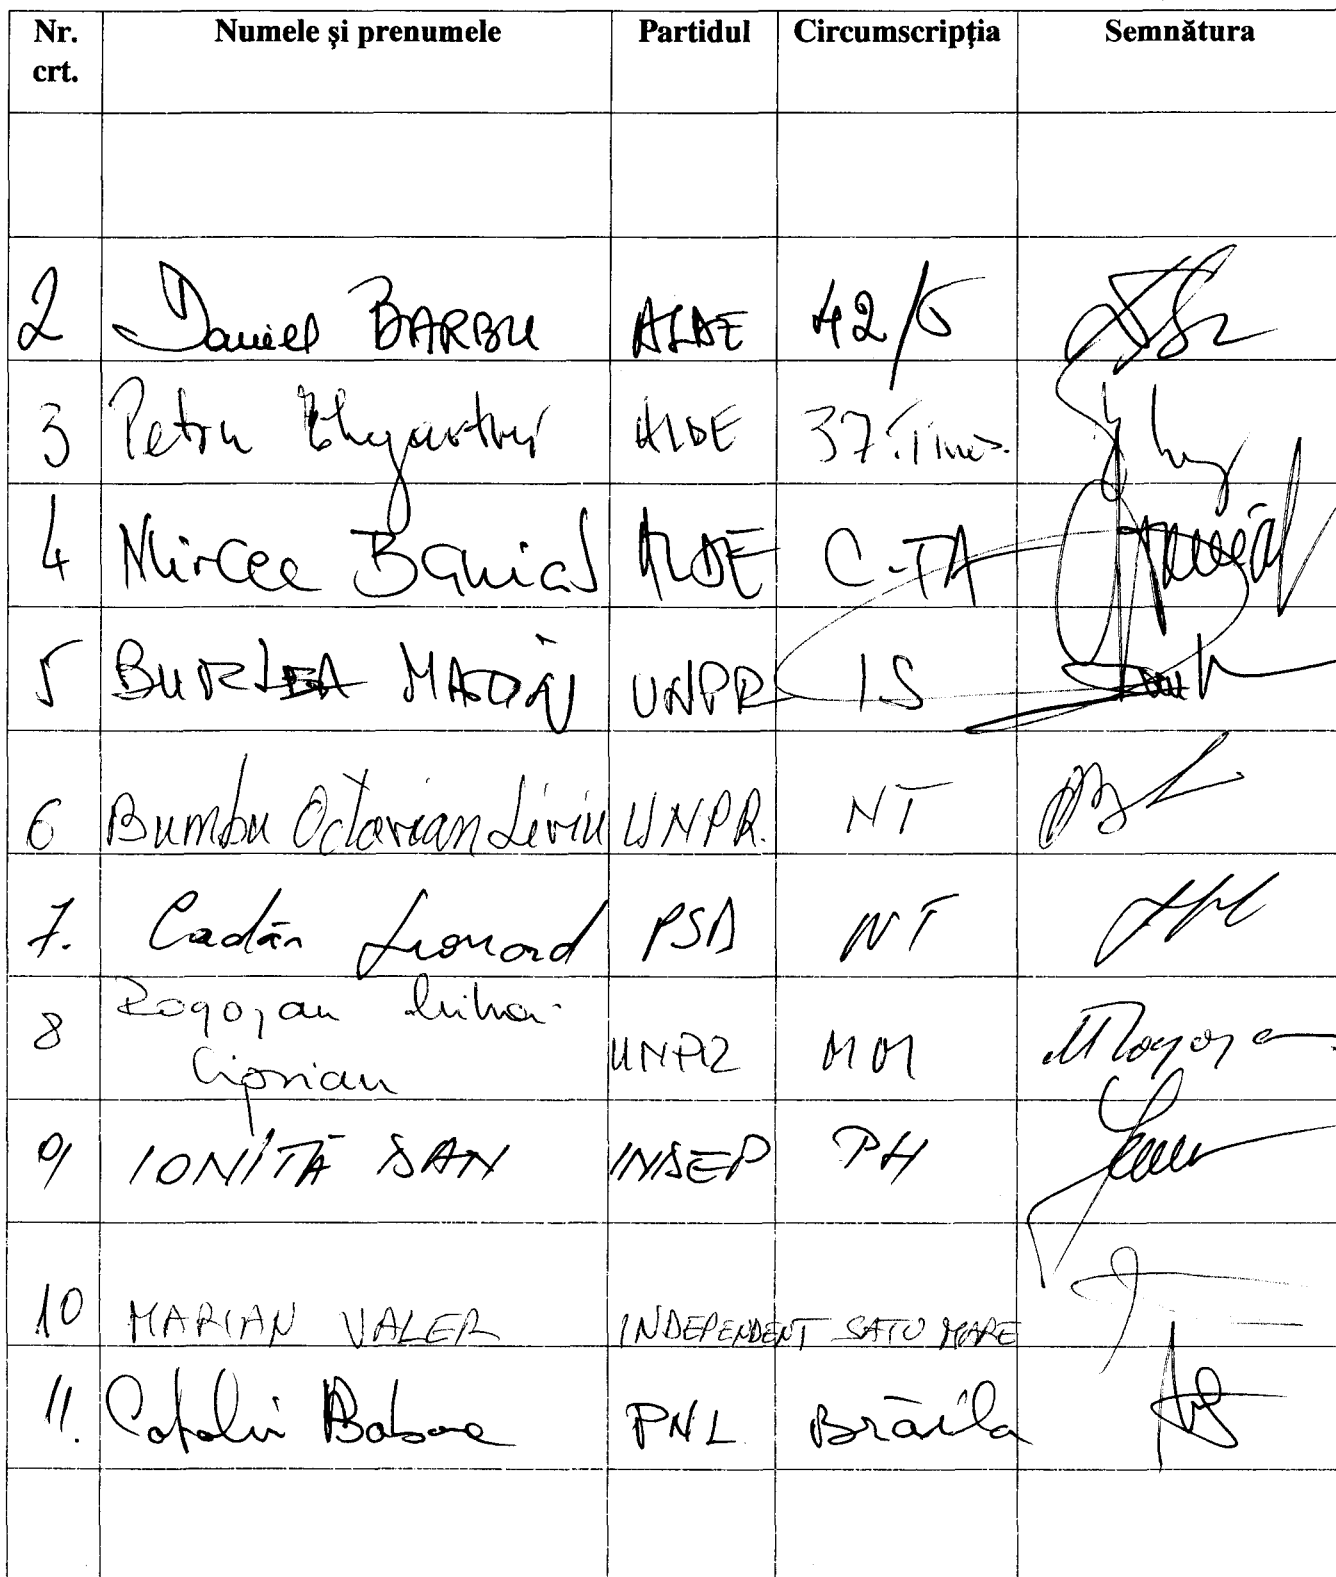 Nr. crt. Numele și prenumele Partidul Circumscripția Semnătura
2 Daniel BARBU ALDE 42/5
3 Petru ALDE 37 Timiș.
4 Mircea Banias ALDE C-TA
5 BURLEA MARIN UNPR IS
6 Bumbu Octavian Liviu UNPR. NT
7. Cadăr Leonard PSD NT
8 Rogojan Mihai-
Ciprian UNPR MM
9 IONIȚĂ DAN INDEP PH
10 MARIAN VALER INDEPENDENT SATU MARE
11. Catalin Boboc PNL Brăila